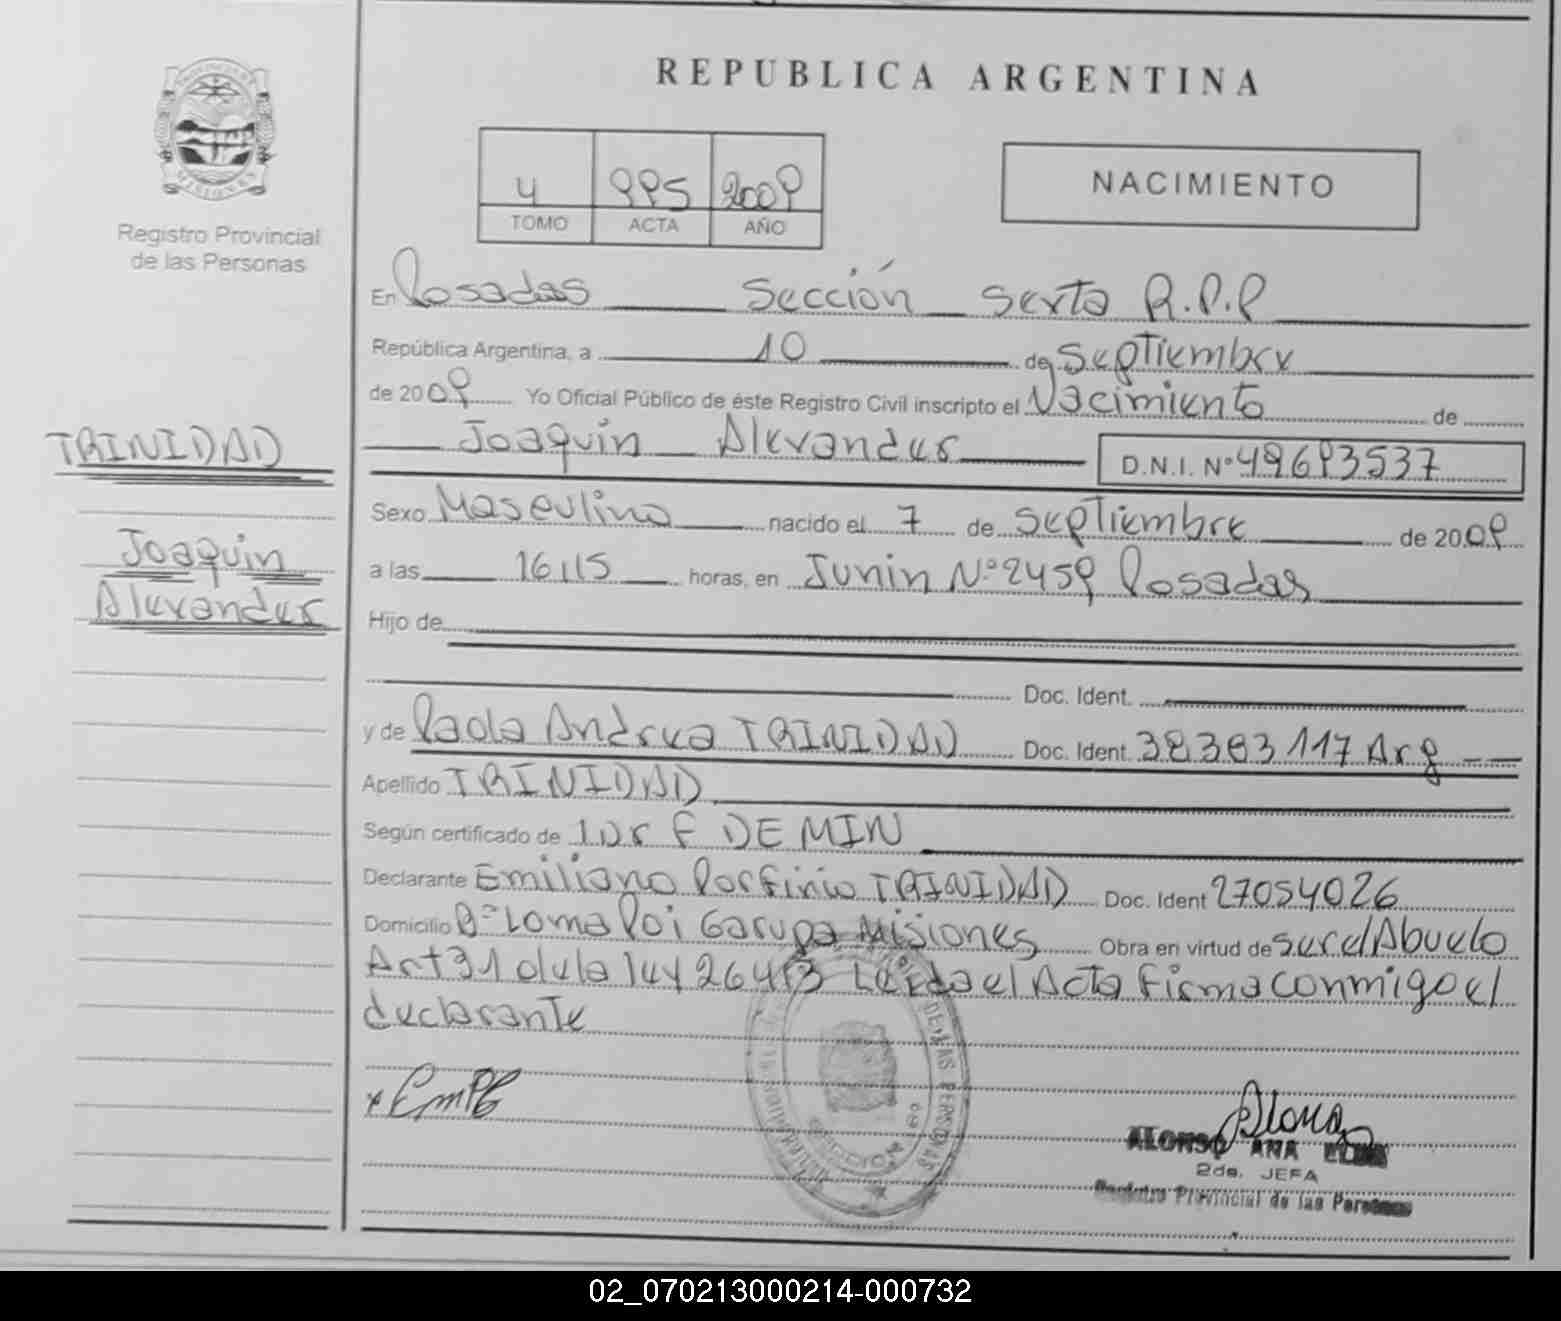 REPUBLICA ARGENTINA
4 995 2009
TOMO ACTA AÑO
NACIMIENTO
Registro Provincial
de las Personas
En Posadas Sección Sexta R.P.P
República Argentina, a 10 de Septiembre
de 2009 Yo Oficial Público de éste Registro Civil inscripto el Nacimiento de
Joaquin Alexander D.N.I. Nº 49693537
TRINIDAD
Joaquin
Alexander
Sexo Masculino nacido el 7 de septiembre de 2009
a las 16,15 horas, en Junin Nº 2459 Posadas
Hijo de
Doc. Ident.
y de Paola Andrea TRINIDAD Doc. Ident. 38383117 Arg
Apellido TRINIDAD
Según certificado de DE MIN
Declarante Emiliano Porfirio TRINIDAD Doc. Ident 27054026
Domicilio Bº Loma Poi Garupa Misiones Obra en virtud de ser el Abuelo
Art 31 de la ley 26413 Leida el Acta firma conmigo el
declarante
ALONSO ANA
2da. JEFA
Registro Provincial de las Personas
02_070213000214-000732